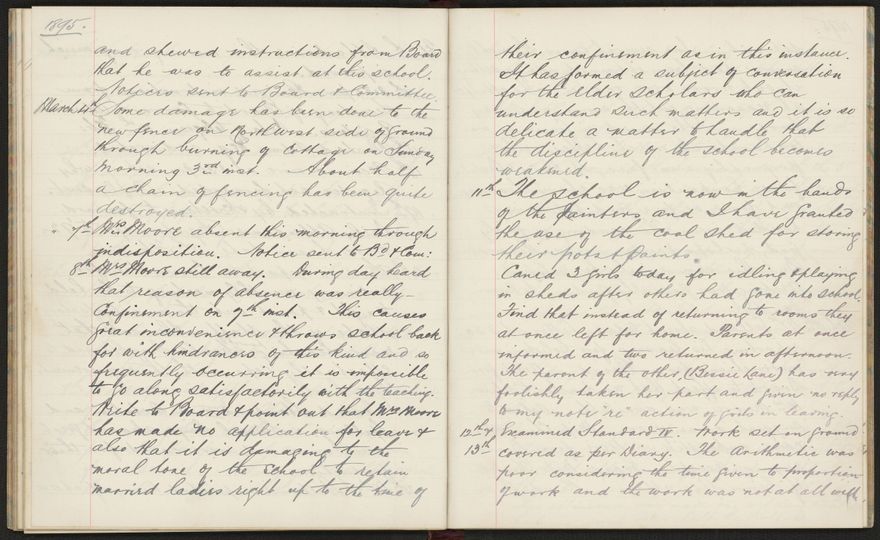 1895.
and shewed instructions from Board
that he was to assist at this school.
Notices sent to Board & Committee.
March 4th Some damage has been done to the
new fence on Northwest side of ground
through burning of cottage on Sunday
morning 3rd inst. About half
a chain of fencing has been quite
destroyed.
" 7th Mrs Moore absent this morning through
indisposition. Notice sent to Bd & Com:
8th Mrs Moore still away. During day heard
that reason of absence was really
Confinement on 7th inst. This causes
great inconvenience & throws school back
for with hindrances of this kind and so
frequently occurring it is impossible
to go along satisfactorily with the teaching.
Write to Board & point out that Mrs Moore
has made no application for leave &
also that it is damaging to the
moral tone of the school to retain
married ladies right up to the time of
their confinement as in this instance.
It has formed a subject of conversation
for the elder scholars who can
understand such matters and it is so
delicate a matter to handle that
the discipline of the school becomes
weakened.
11th The school is now in the hands
of the painters and I have granted
the use of the coal shed for storing
their pots & paints.
Caned 3 girls today for idling & playing
in sheds after others had gone into school.
Find that instead of returning to rooms they
at once left for home. Parents at once
informed and two returned in afternoon.
The parent of the other, (Bessie Lane) has very
foolishly taken her part and given no reply
to my note "re" action of girls in leaving.
12th & Examined Standard IV. Work set on ground
13th covered as per Diary. The arithmetic was
poor considering the time given to proportion
of work and the work was not at all well